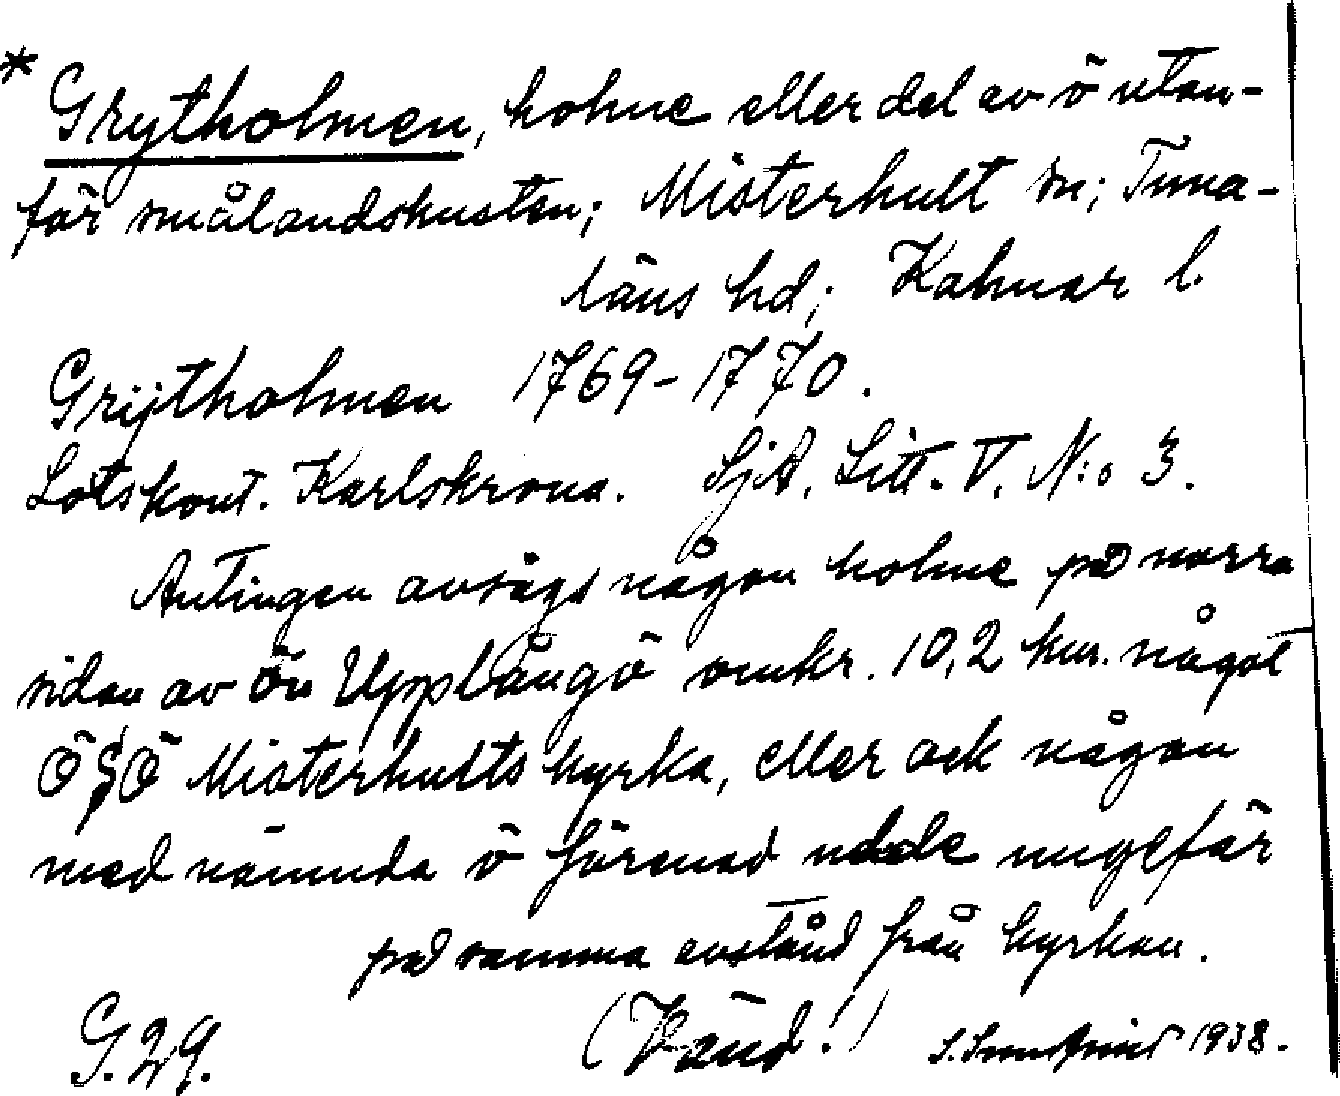 * Grytholmen, holme eller del av ö utan-
för smålandskusten; Misterhult sn; Tuna-
läns hd; Kalmar l.
Grijtholmen 1769-1770.
Lotskont. Karlskrona. SjA. Litt. V. N:o 3.
Antingen avsägs någon holme på norra
sidan av ön Upplångö omkr. 10,2 km. något
ÖSÖ Misterhults kyrka, eller ock någon
med nämnda ö förenad udde ungefär
på samma avstånd från kyrkan.
G.29. (Vänd!) 1938.